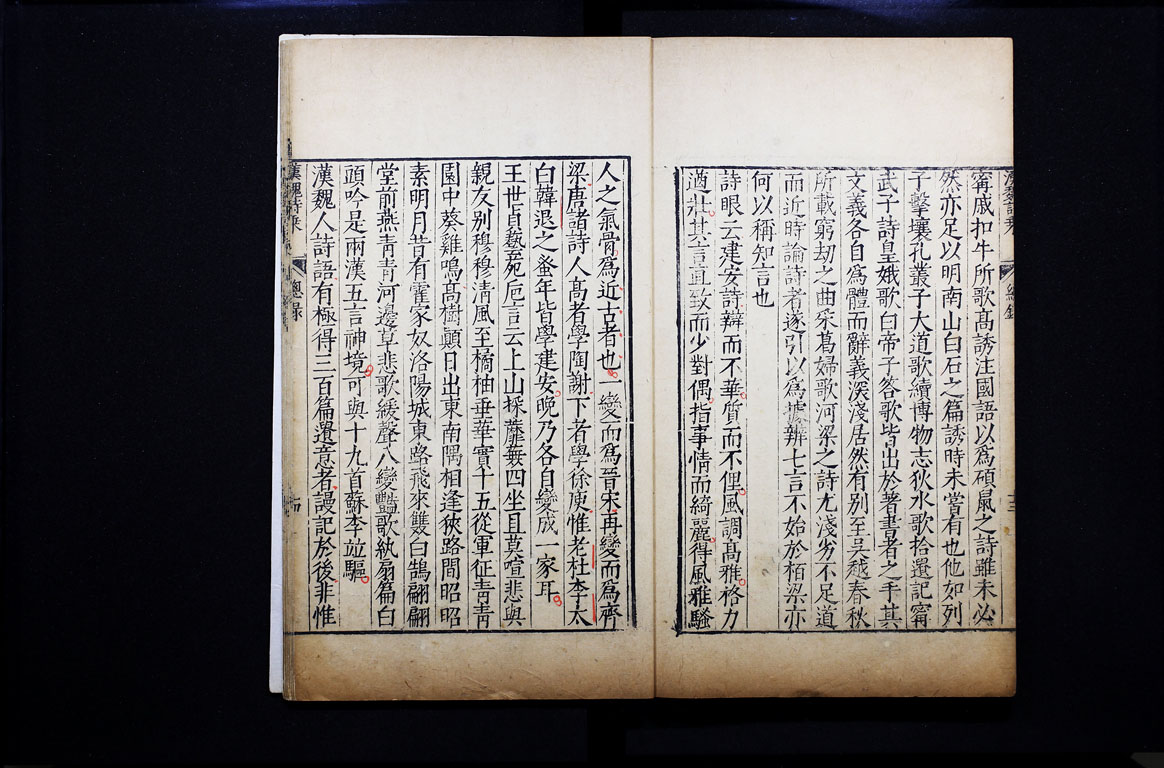 甯戚扣牛所歌高誘注國語以爲碩鼠之詩雖未必
然亦足以明南山白石之篇誘時未嘗有也他如列
子擊壤孔叢子大道歌續博物志狄水歌拾遺記甯
武子詩皇娥歌白帝子答歌皆出於著書者之手其
文義各自爲體而辭義深淺居然有別至吳越春秋
所載窮劫之曲采葛婦歌河梁之詩尤淺劣不足道
而近時論詩者遂引以爲據辨七言不始於栢梁亦
何以稱知言也
詩眼云建安詩辯而不華質而不俚風調高雅格力
遒壯其言直致而少對偶指事情而綺麗得風雅騷
人之氣骨爲近古者也一變而爲晉宋再變而爲齊
梁唐諸詩人高者學陶謝下者學徐庾惟老杜李太
白韓退之蚤年皆學建安晚乃各自變成一家耳
王世貞藝苑卮言云上山採蘼蕪四坐且莫諠悲與
親友別穆穆清風至橘柚垂華實十五從軍征青青
園中葵雞鳴高樹顛日出東南隅相逢狹路間昭昭
素明月昔有霍家奴洛陽城東路飛來雙白鵠翩翩
堂前燕青青河邊草悲歌緩聲八變豔歌紈扇篇白
頭吟是兩漢五言神境可與十九首蘇李竝驅
漢魏人詩語有極得三百篇遺意者謾記於後非惟
漢魏詩乘
總錄
十四
漢魏詩乘
總錄
十三